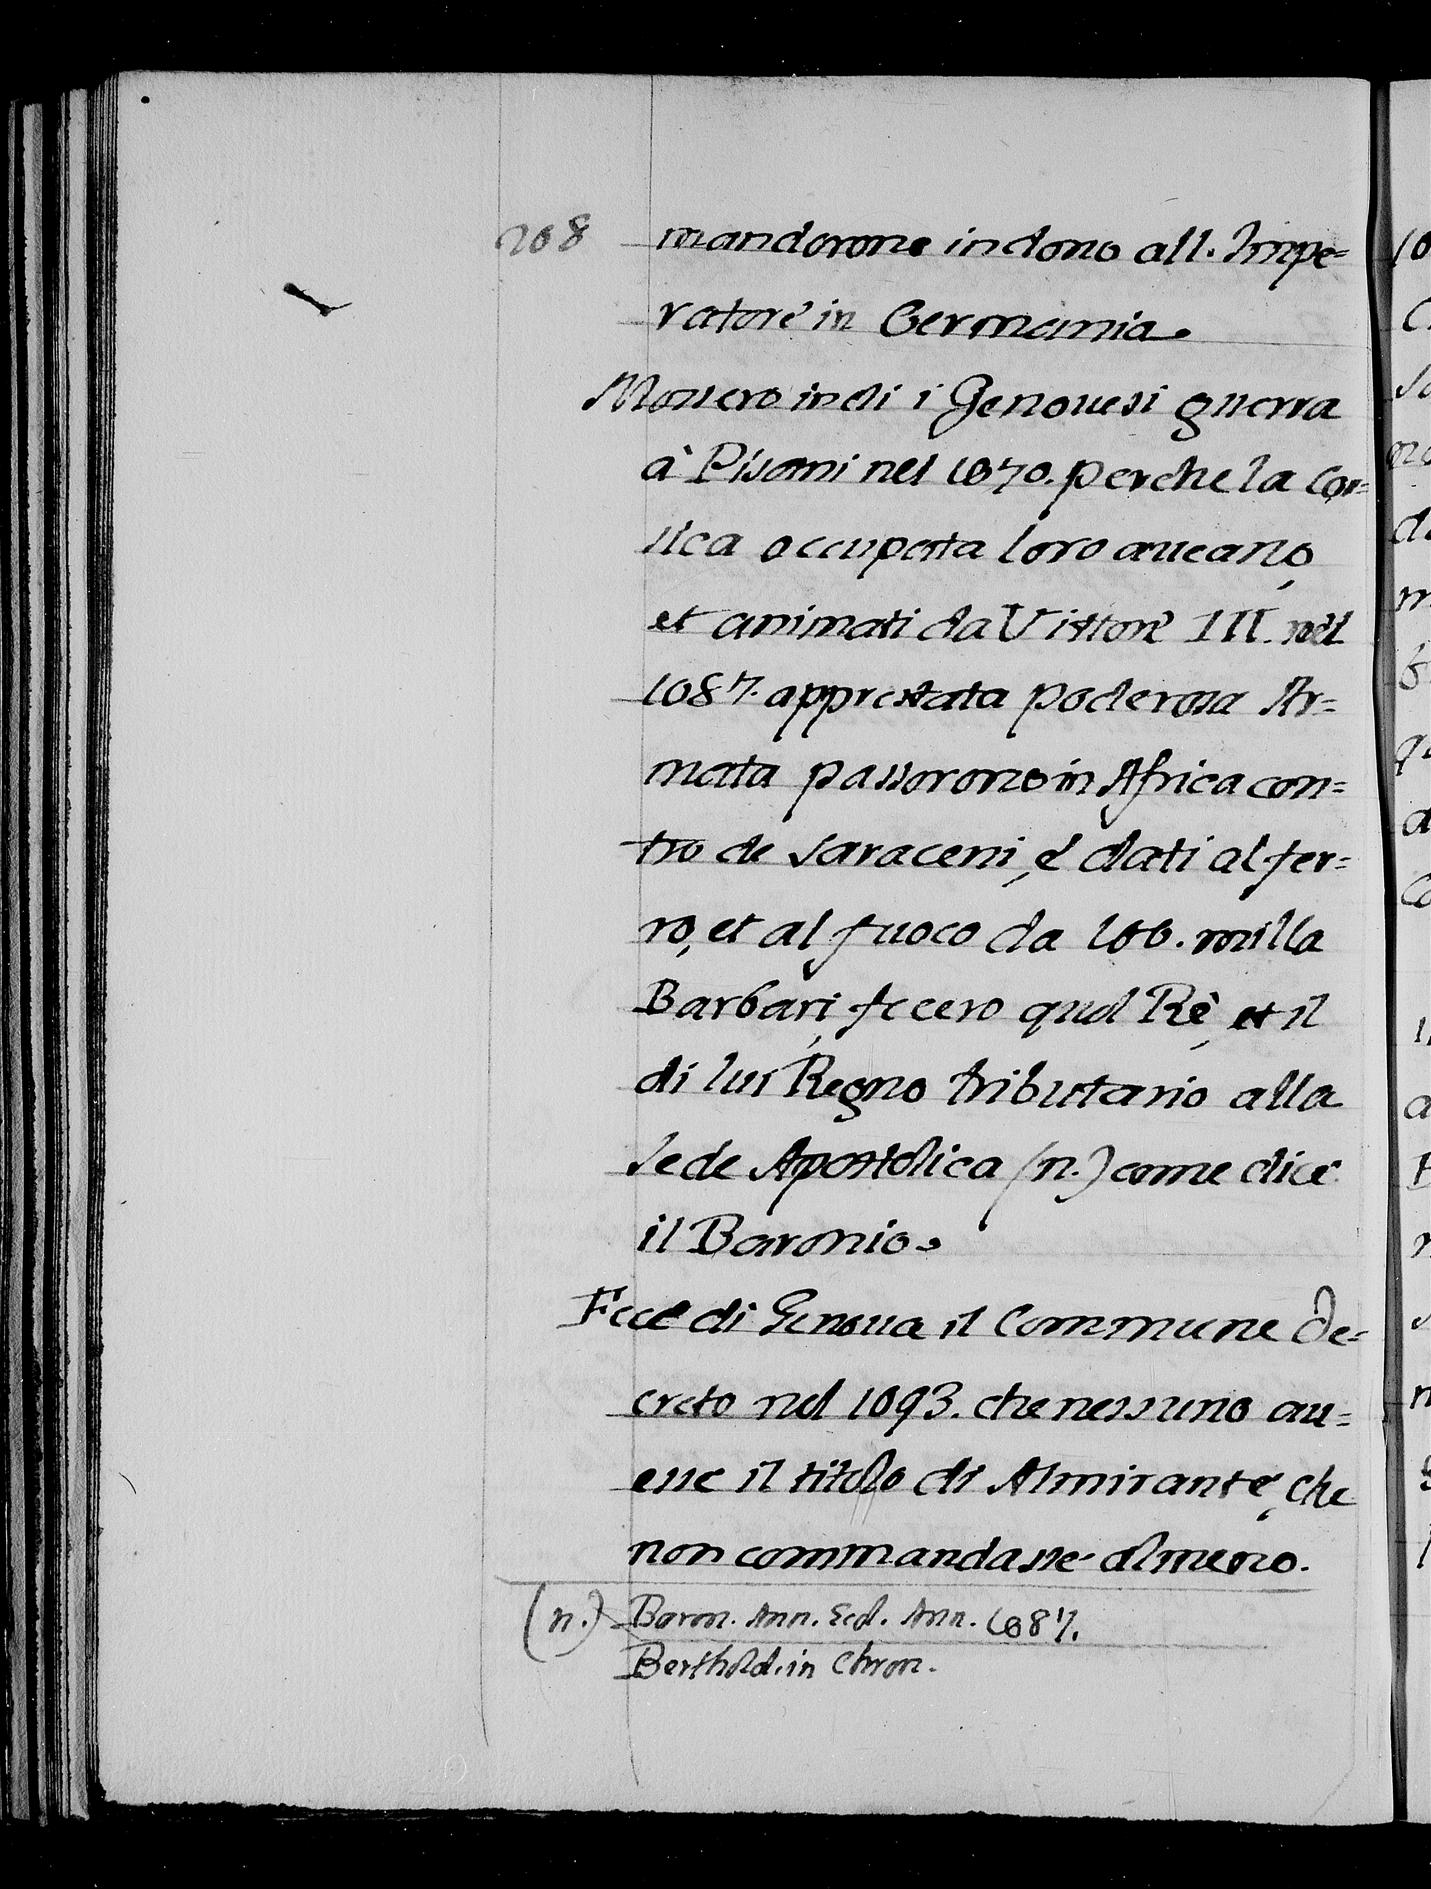 208
mandorono in dono all. Impe=
ratore in Germania.
Mossero indi i Genouesi guerra
à Pisani nel 1070. perche la Cor=
sica occupata loro aueano,
et animati da Vittore III. nel
1087. apprestata poderosa Ar=
mata passorono in Africa con=
tro de Saraceni, e dati al fer=
ro, et al fuoco da 100. milla
Barbari, fecero quel Rè, et il
di lui Regno tributario alla
Sede Apostolica (n.) come dice
il Baronio.
Fece di Genoua il Commune De=
creto nel 1093. che nessuno au=
esse il titolo di Almirante, che
non commandasse almeno.
(n.) Baron. Ann. Eccl. Ann. 1087.
Berthold. in Chron.